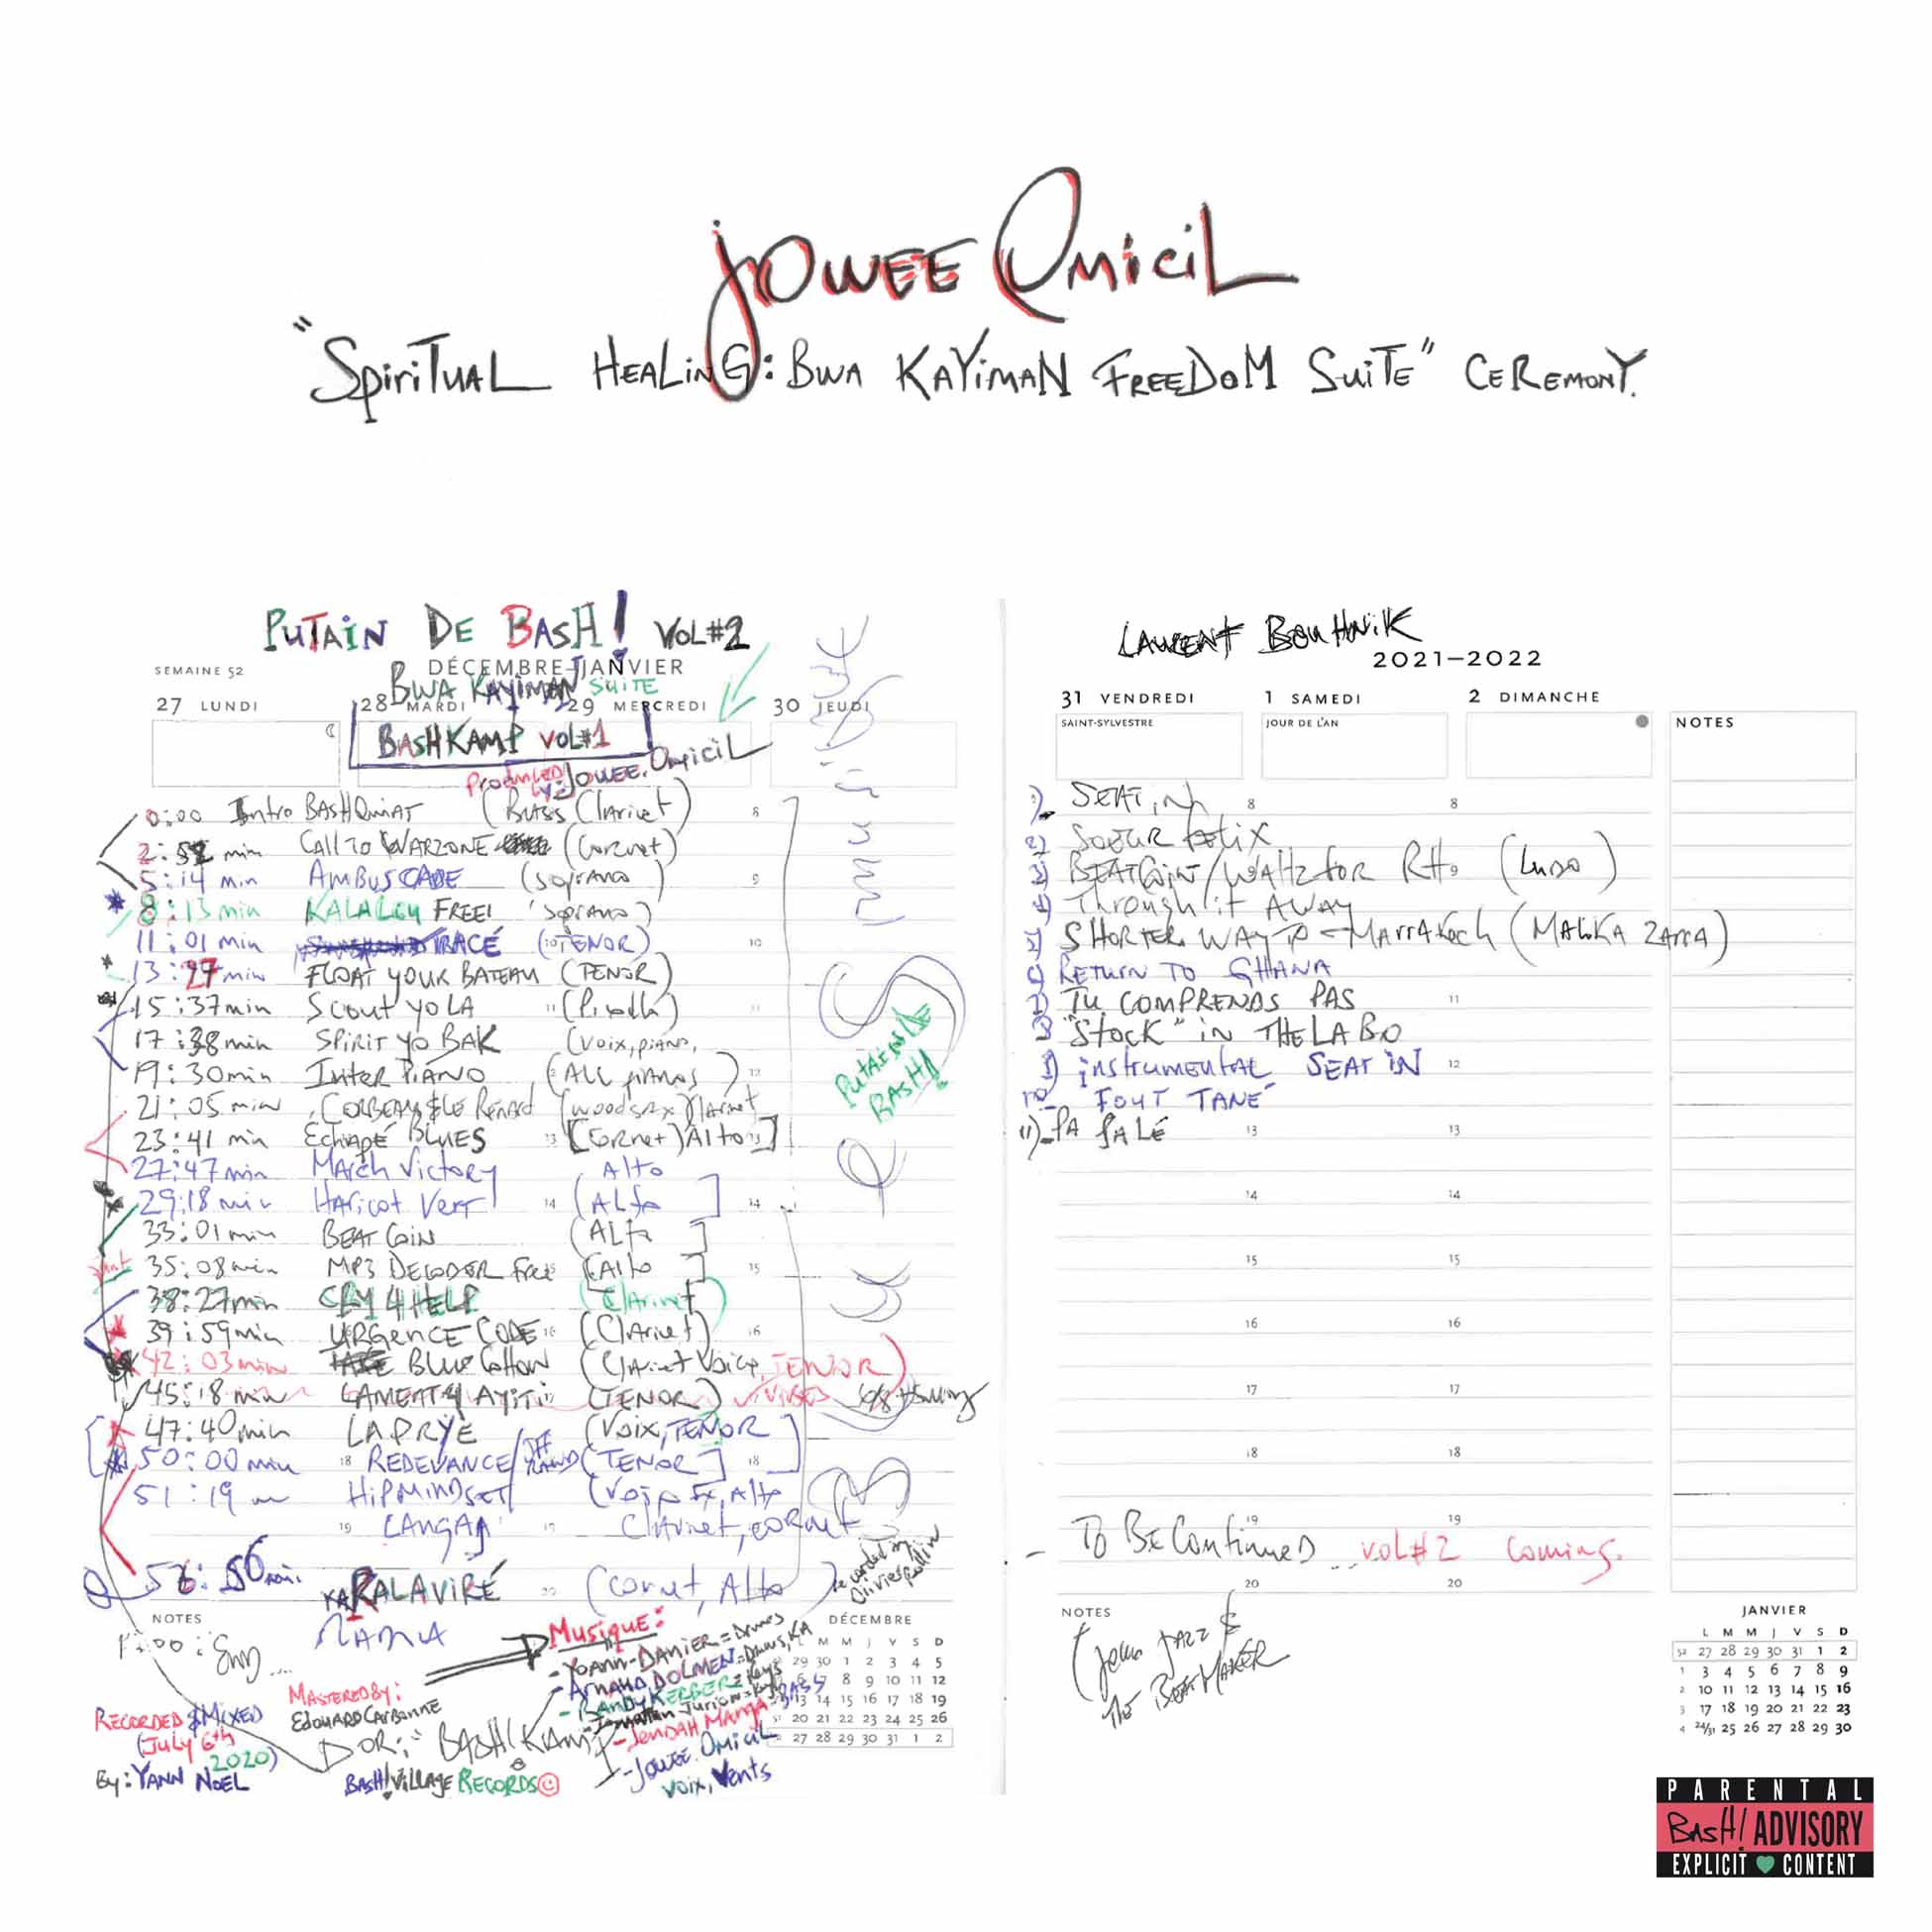 JOWEE OMICIL
"SPIRITUAL HEALING: BWA KAYIMAN FREEDOM SUITE" CEREMONY.
PUTAIN DE BASH! VOL#2
SEMAINE 52
DÉCEMBRE-JANVIER
BWA KAYIMAN SUITE
27 LUNDI
28 MARDI
29 MERCREDI
30 JEUDI
BASHKAMP VOL#1
Produced by: Jowee. Omicil
0:00 Intro BASHQUIAT (BASS Clarinet) 8
min CALL TO WARZONE (Cornet)
5:14 Min AMBUSCADE (soprano) 9
8:13 min KALALOU FREE! (soprano)
11:01 min TRACÉ (TENOR) 10
min FLOAT YOUR BATEAU (TENOR)
15:37 min SCOUT YO LA 11 11
17:38 min SPIRIT YO BAK (voix, piano,
19:30 min INTER PIANO (ALL pianos) 12
21:05 min CORBEAU & LE Renard
23:41 min Echapé BLUES 13 [Cornet) Alto] 13
27:47 min March Victory Alto
29:18 min Haricot Vert 14 (Alto] 14
33:01 min BEAT COIN (Alto]
35:08 min MP3 DECODER Free (Alto] 15
38:27 min CRY 4 HELP (Clarinet)
39:59 min URGENCE CODE 16 (Clarinet) 16
42:03 min BLUE Cotton (Clarinet Voice, TENOR)
45:18 min LAMENT 4 AYITI (TENOR)
47:40 min LAPRYE (Voix, TENOR
50:00 min 18 REDEVANCE (TENOR] 18
51:19 HIPMINDSET Alto
19 LANGAJ 19 Clarinet, cornet
RALAVIRÉ 20 (cornet, Alto)
PUTAIN DE BASH!
NOTES
MAMA
End...
RECORDED & MIXED
(July 6th
2020)
By: YANN NOEL
MASTERED BY:
EDOUARD CARBONNE
BASH! KAMP
BASH! VILLAGE RECORDS ©
Musique:
- Yoann DANIER = Drums
- Arnaud DOLMEN = Drums, KA
- RANDY KERBER = Keys
- Jonathan Jurion = Keys
- JENDAH MANGA = BASS
- Jowee. Omicil
voix, Vents
DÉCEMBRE
L M M J V S D
29 30 1 2 3 4 5
6 7 8 9 10 11 12
13 14 15 16 17 18 19
20 21 22 23 24 25 26
27 28 29 30 31 1 2
LAURENT BOUHNIK
2021–2022
31 VENDREDI
1 SAMEDI
2 DIMANCHE
SAINT-SYLVESTRE
JOUR DE L'AN
NOTES
SEAT in 8 8
SOEUR FELIX
BEATCOIN/WALTZ FOR RH (LUDO)
Through it AWAY
SHORTER WAY TO MARRAKech (MALIKA ZARRA)
RETURN TO GHANA
TU COMPRENDS PAS 11
"STOCK" IN THE LABO
instrumental SEAT IN 12
FOUT TANE
11)- PA PALÉ 13 13
14 14
15 15
16 16
17 17
18 18
19 19
- TO BE CONTINUED ... VOL#2 Coming.
20 20
NOTES
(John JAZZ &
The BEAT MAKER
JANVIER
L M M J V S D
52 27 28 29 30 31 1 2
1 3 4 5 6 7 8 9
2 10 11 12 13 14 15 16
3 17 18 19 20 21 22 23
4 24/31 25 26 27 28 29 30
PARENTAL
BASH! ADVISORY
EXPLICIT CONTENT